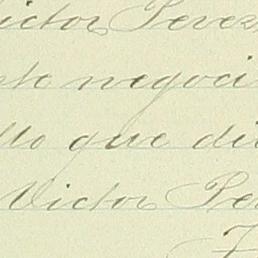 ictor Perez
te negoci
llo que di
Victor Pe